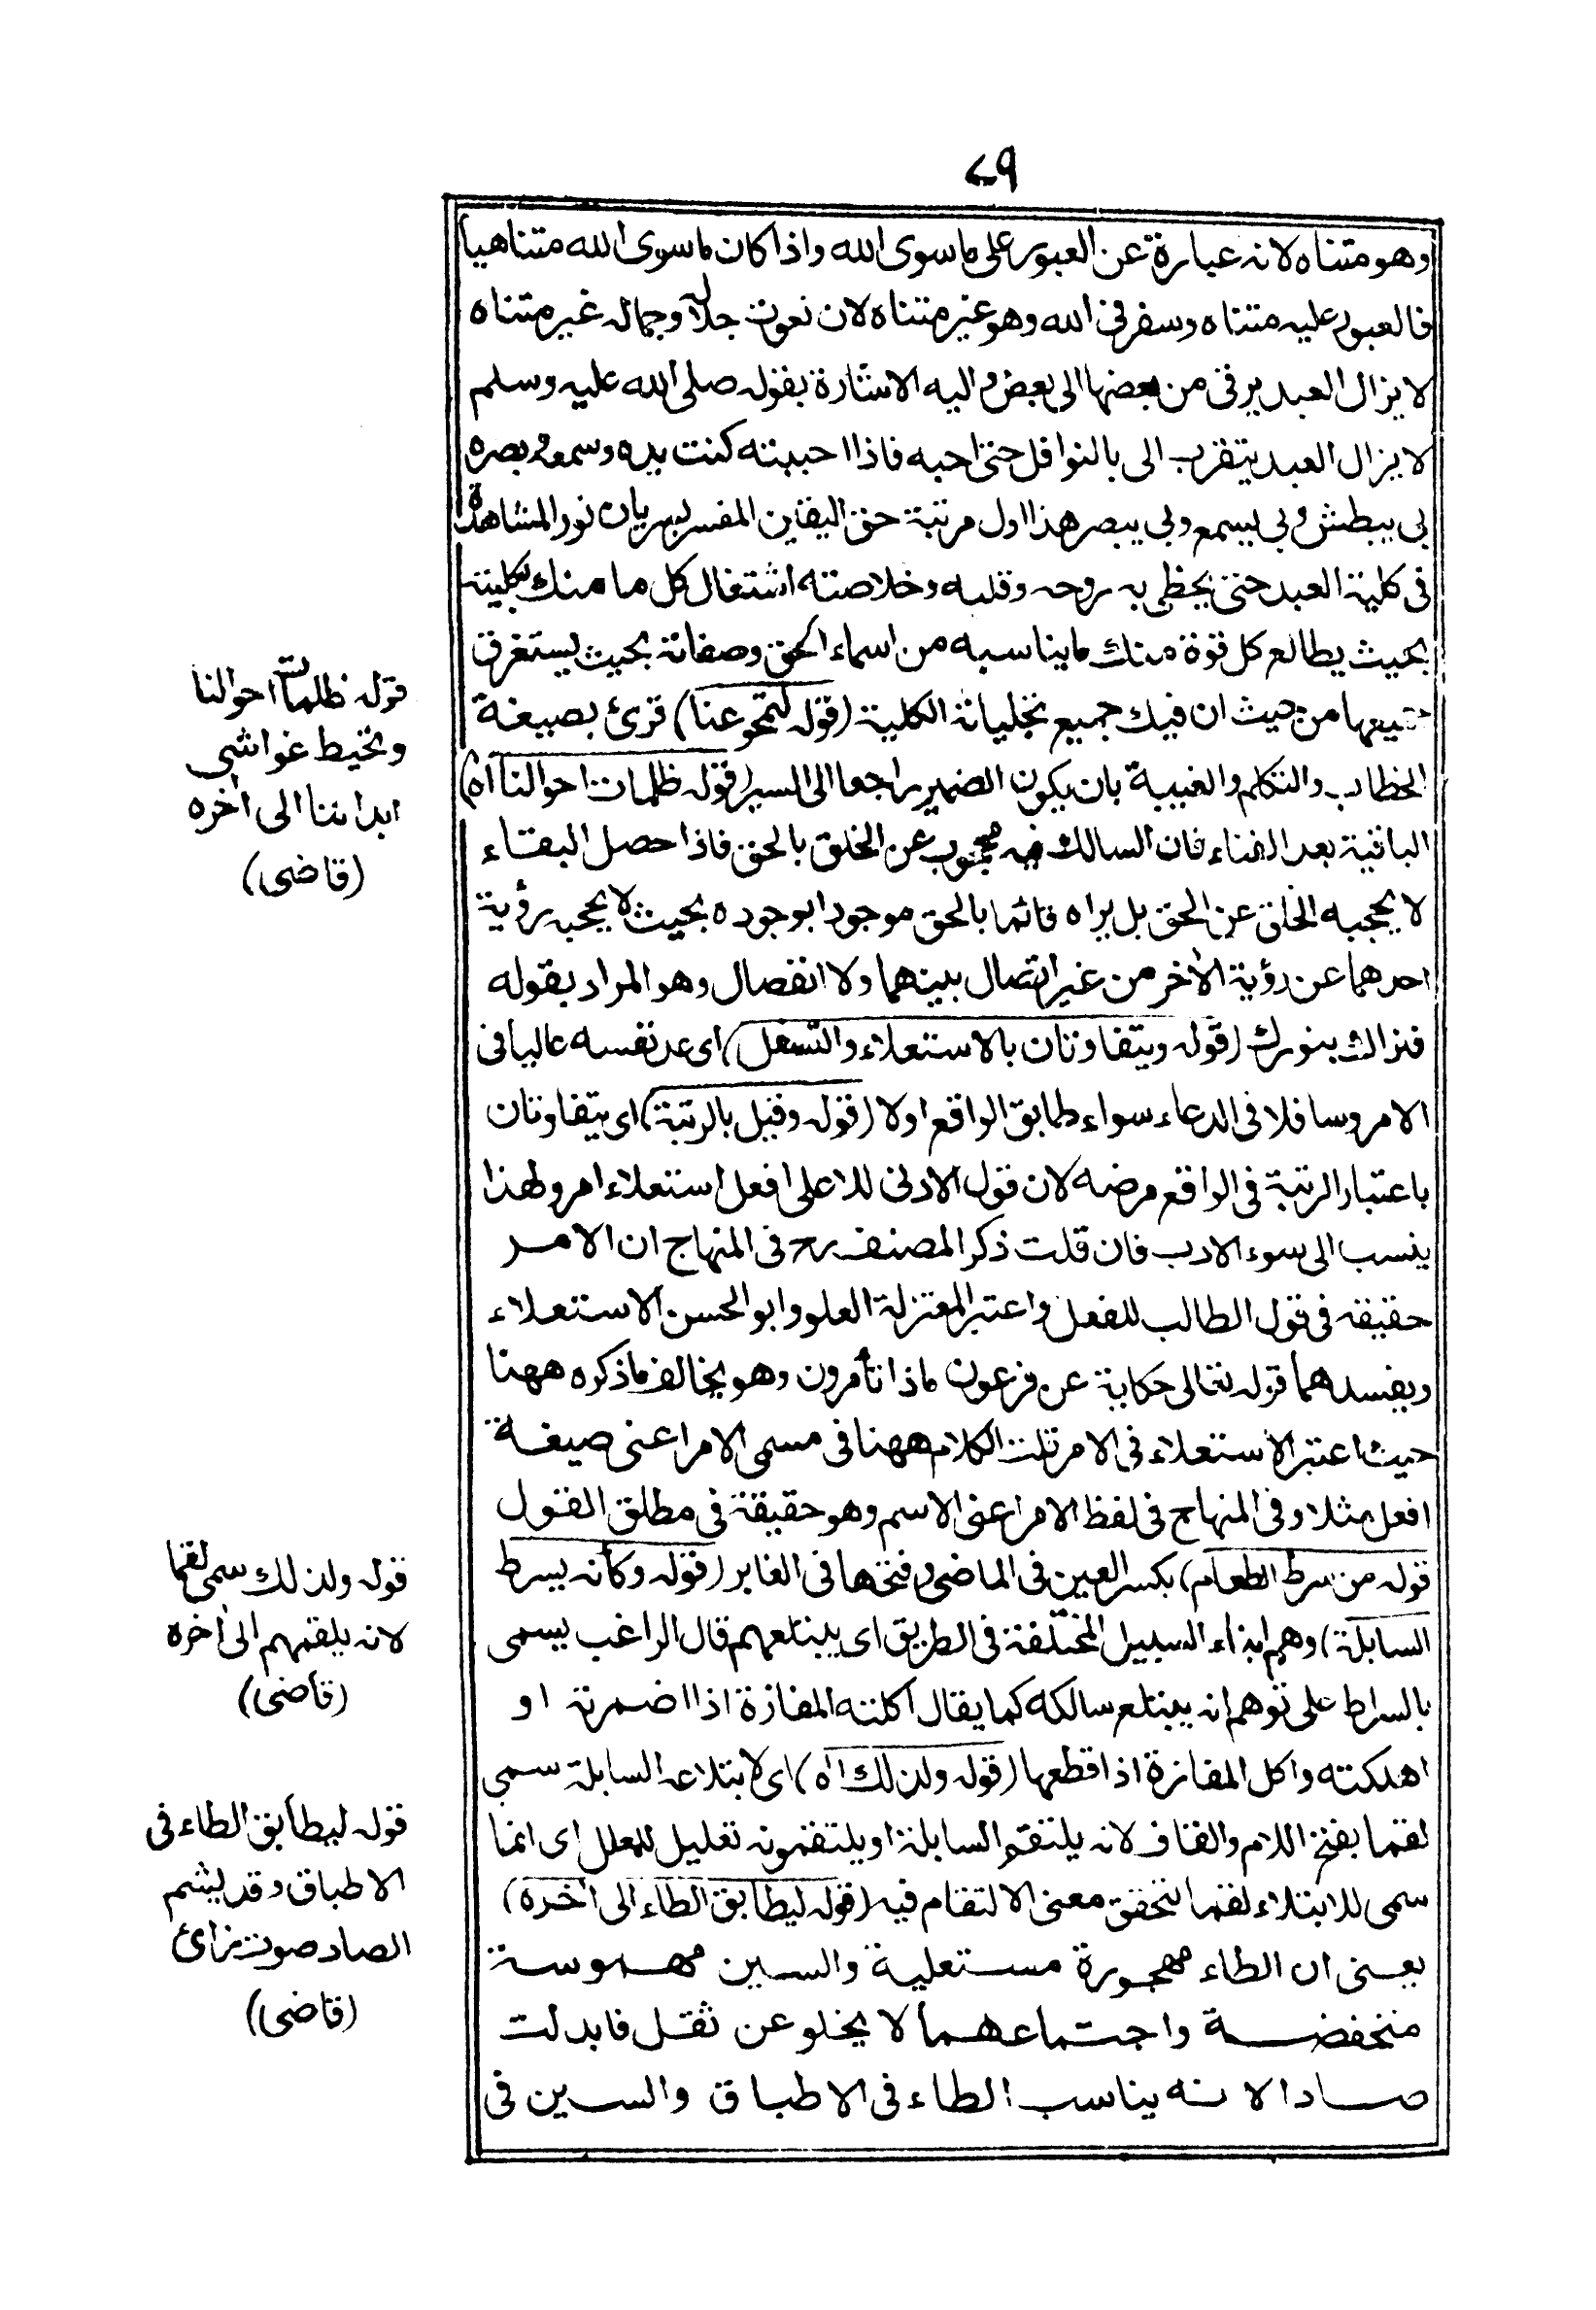 ٧٩
وهو متناه لانه عبارة عن العبور على ما سوى الله واذا كان ما سوى الله متناهيا
فالعبور عليه متناه وسفر فى الله وهو غير متناه لان نعوت جلاله وجماله غير متناه
لا يزال العبد يرقى من بعضها الى بعض واليه الاشارة بقوله صلى الله عليه وسلم
لا يزال العبد يتقرب الى بالنوافل حتى احبه فاذا احببته كنت يده وسمعه وبصره
بى يبطش وبى يسمع وبى يبصر هذا اول مرتبة حق اليقين المفسر بسريان نور المشاهدة
فى كلية العبد حتى يحظى به روحه وقلبه وخلاصته اشتغال كل ما منك بكليته
بحيث يطالع كل قوة منك ما يناسبه من اسماء الحق وصفاته بحيث يستغرق
جميعها من حيث ان فيك جميع تجلياته الكلية (قوله لتمحو عنا) قرئ بصيغة
الخطاب والتكلم والغيبة بان يكون الضمير راجعا الى السير (قوله ظلمات احوالنا اه)
الباقية بعد الفناء فان السالك فيه محجوب عن الخلق بالحق فاذا حصل البقاء
لا يحجبه الخلق عن الحق بل يراه قائما بالحق موجودا بوجوده بحيث لا يحجبه رؤية
احدهما عن رؤية الآخر من غير اتصال بينهما ولا انفصال وهو المراد بقوله
فنراك بنورك (قوله ويتفاوتان بالاستعلاء والتسفل) اى عد نفسه عاليا فى
الامر وسافلا فى الدعاء سواء طابق الواقع اولا (قوله وقيل بالرتبة) اى يتفاوتان
باعتبار الرتبة فى الواقع مرضه لان قول الادنى للاعلى افعل استعلاء امر ولهذا
ينسب الى سوء الادب فان قلت ذكر المصنف رح فى المنهاج ان الامر
حقيقة فى قول الطالب للفعل واعتبر المعتزلة العلو وابو الحسن الاستعلاء
ويفسدهما قوله تعالى حكاية عن فرعون ماذا تأمرون وهو يخالف ما ذكره ههنا
حيث اعتبر الاستعلاء فى الامر قلت الكلام ههنا فى مسمى الامر اعنى صيغة
افعل مثلا وفى المنهاج فى لفظ الامر اعنى الاسم وهو حقيقة فى مطلق القول
قوله من سرط الطعام) بكسر العين فى الماضى وفتحها فى الغابر (قوله وكأنه يسرط
السابلة) وهم ابناء السبيل المختلفة فى الطريق اى يبتلعهم قال الراغب يسمى
بالسراط على توهم انه يبتلع سالكه كما يقال اكلته المفازة اذا اضمرته او
اهلكته واكل المفازة اذا قطعها (قوله ولذلك اه) اى لابتلاعه السابلة سمى
لقما بفتح اللام والقاف لانه يلتقم السابلة او يلتقمونه تعليل للمعلل اى انما
سمى للابتلاء لقما لتحقق معنى الالتقام فيه (قوله ليطابق الطاء الى اخره)
يعنى ان الطاء مهجورة مستعلية والسين مهموسة
منخفضة واجتماعهما لا يخلو عن ثقل فابدلت
صادا لانه يناسب الطاء فى الاطباق والسين فى
قوله ظلمات احوالنا
وتخيط غواشى
ابداننا الى اخره
(قاضى)
قوله ولذلك سمى لقما
لانه يلقمهم الى اخره
(قاضى)
قوله ليطابق الطاء فى
الاطباق وقد يشم
الصاد صوت زاى
(قاضى)